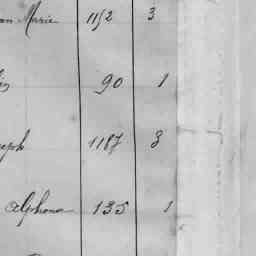 an Marie 1152 3
90 1
seph 1187 3
Alphonse 135 1